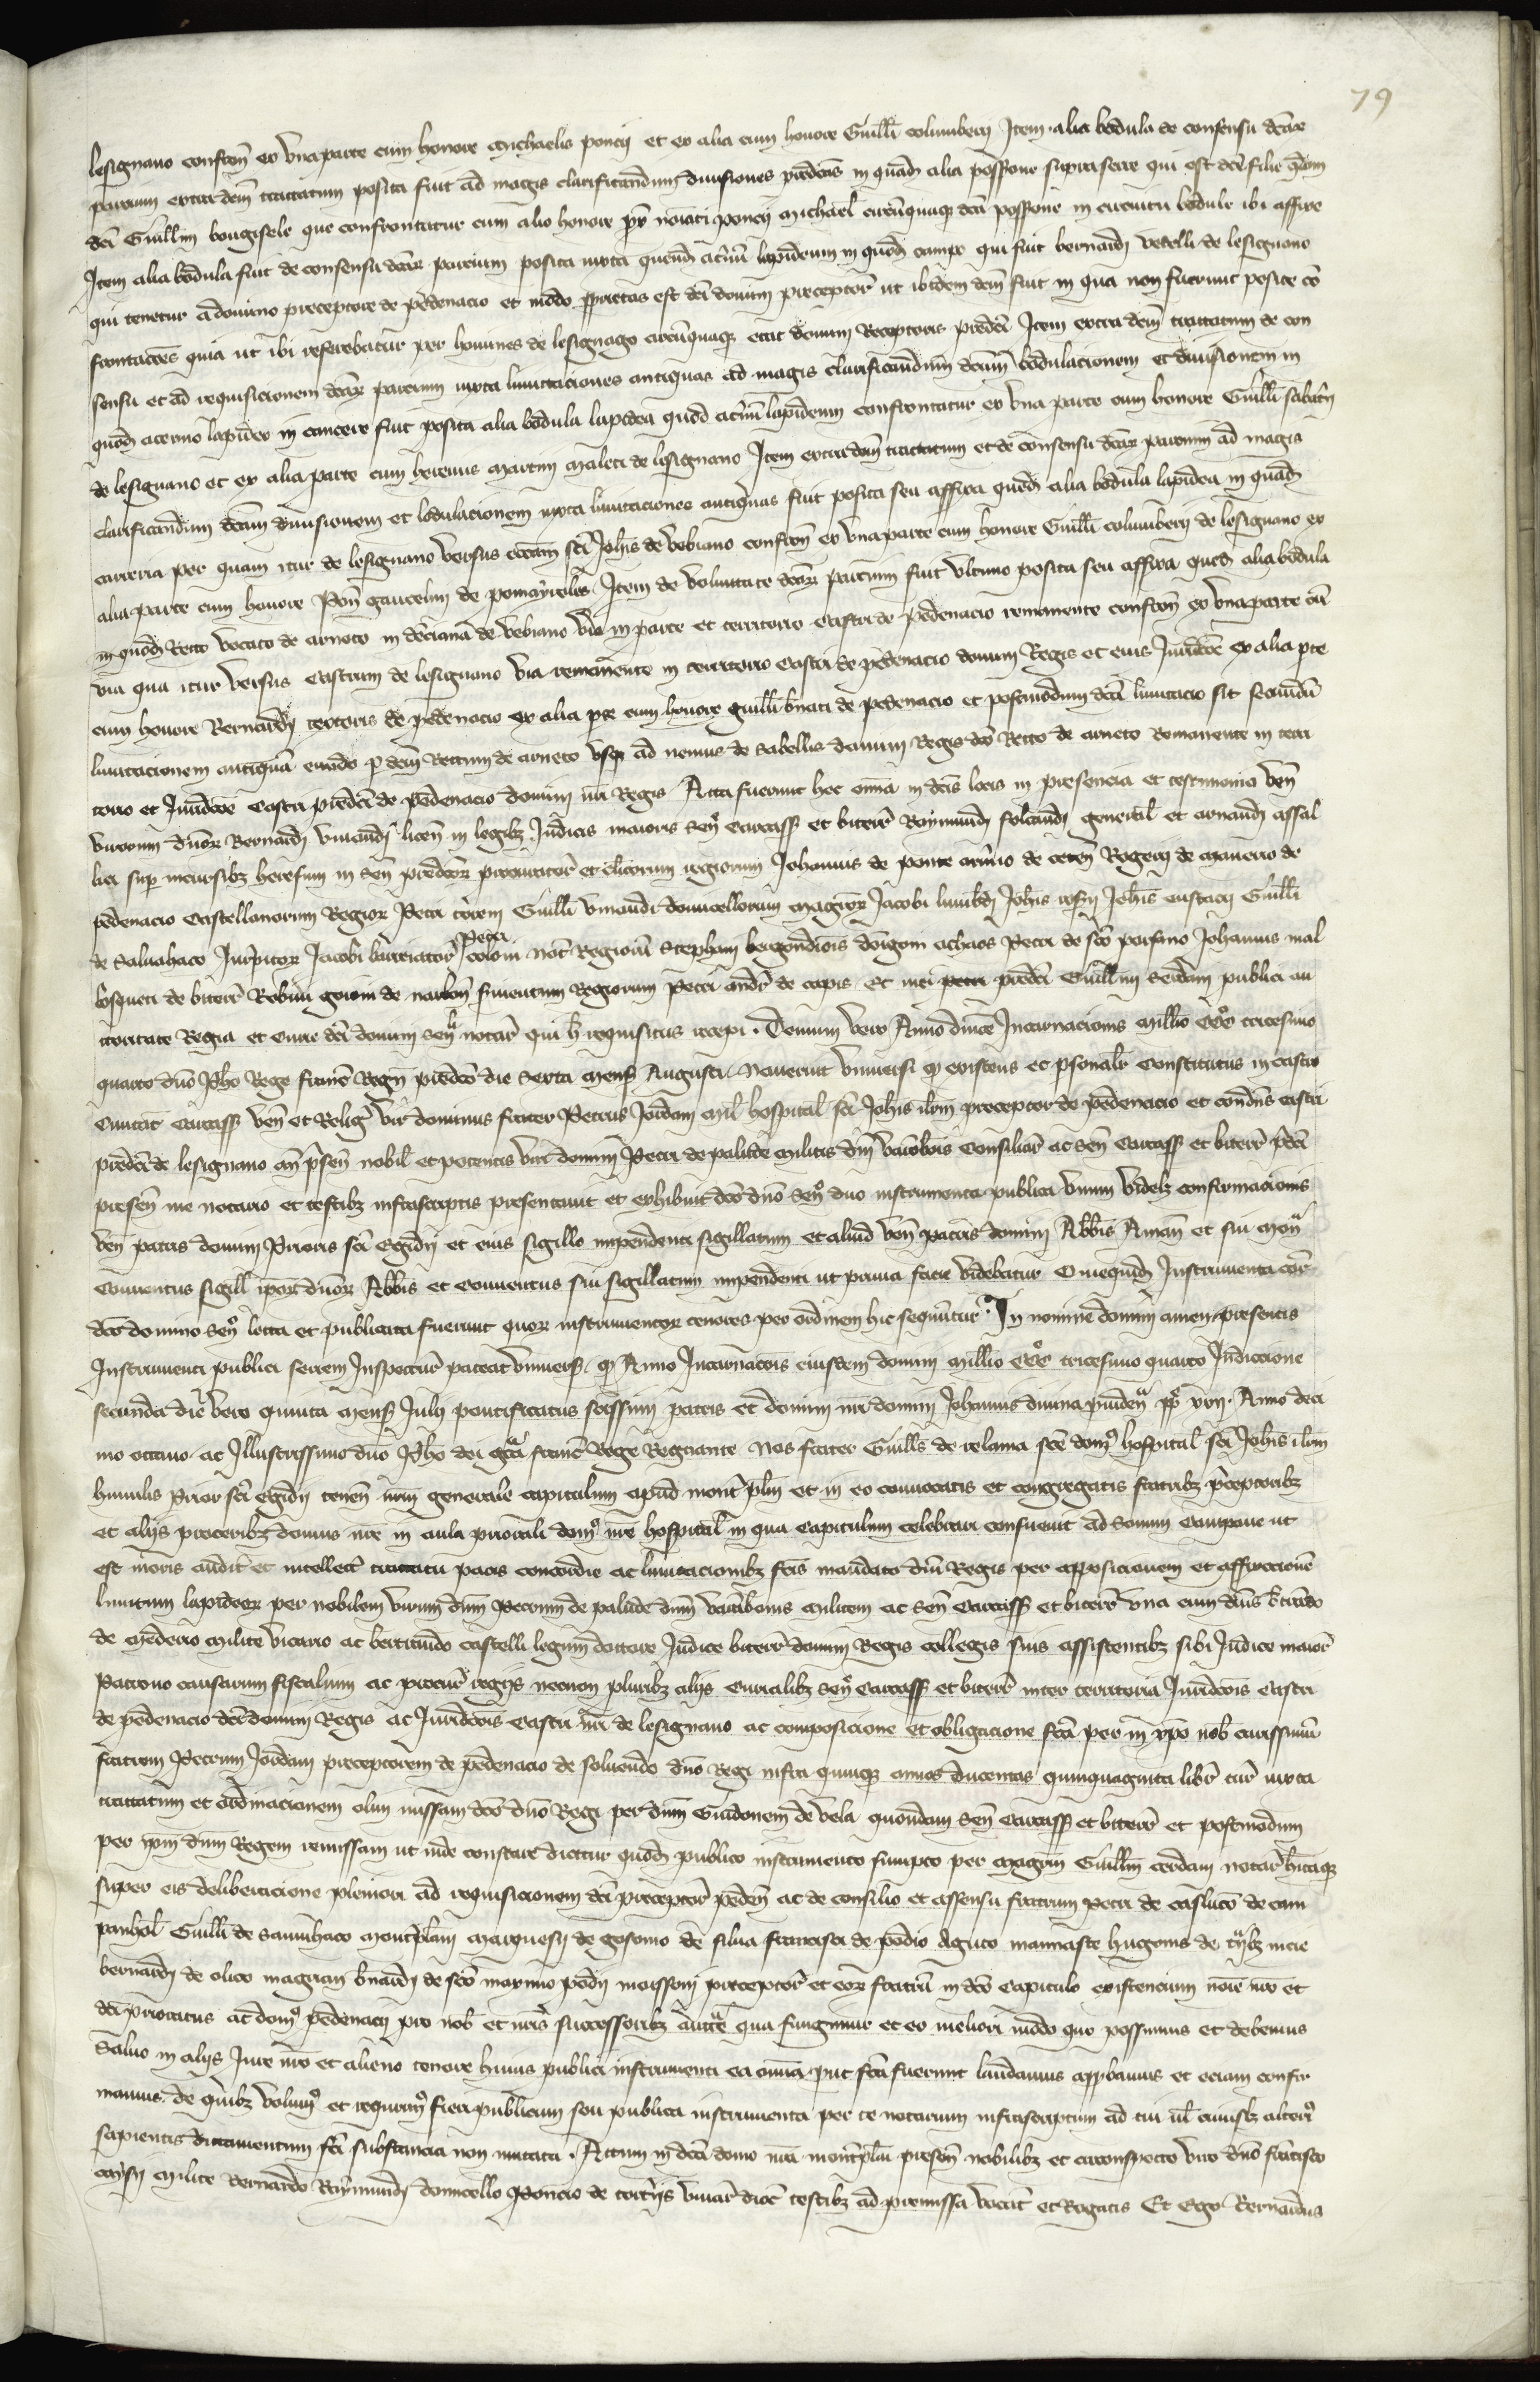 79
lesignano confron̄ ex vna parte cum honore michaelis poncij et ex alia cum honore Guilli columberij Item alia bodula de consensu dc̄arum
parcium extra dem̄ tractatum posita fuit ad magis clarificandum diuisiones predc̄as in quad̄ alia possessione suprascire qui est dc̄e filie qdam
dc̄i Guillm̄ que confrontatur cum alio honore noīati poncij michael in circuitu bodule ibi affixe
Item alia bodula fuit de consensu dc̄ar parcium posita iuxta quend̄ acr̄uū lapideum in quod̄ campo qui fuit bernard̄ vitalli de lesignano
qui tenetur a domino preceptore de pedenacio et modo est dc̄i domini preceptor̄ ut ibidem dem̄ fuit in qua non fuerunt posite cō
frontac̄oes quia ut ibi referebatur per homines de lesignano erat domini preceptoris predc̄i Item extra dem̄ tractatum de con
sensu et ad requisicionem dc̄ar parcium iuxta limitaciones antiquas ad magis clarificandum dc̄am bodulacionem et diuisionem in
quod̄ acervo lapideo in cancere fuit posita alia bodula lapidea quod acr̄uū lapideum confrontatur ex vna parte cum honore Guilli sabat̄ij
de lesignano et ex alia parte cum heremis martin maleti de lesignano Item extra dem̄ tractatum et de consensu dc̄ar parcium ad magis
clarificandum dc̄am diuisionem et bodulacionem iuxta limitaciones antiquas fuit posita seu affixa qued̄ alia bodula lapidea in quad̄
carreria per quam itur de lesignano versus ecc̄am sc̄i Joh̄is de vebiano confron̄ ex vna parte cum honore Guilli columberij de lesignano ex
alia parte cum honore Pon̄ gaucelini de Item de voluntate dc̄ar parcium fuit vltimo posita seu affixa qued̄ alia bodula
in quod̄ Recto vocato de arneto in de vebiano via in parte et territorio castri de pedenacio remanente confron̄ ex vna parte cū
via qua itur versus castrum de lesignano via remanente in territorio castri de pedenacio domini Regis et eius Juridc̄oe ex alia pte
cum honore Bernardj textoris de pedenacio ex alia pte cum honore guilli de pedenacio et postmodum dc̄a limitacio sit secundū
limitacionem antiquā eundo p dem̄ Rectum de arneto vsq ad nemus de sabellis domini Regis dc̄o Recto de arneto Romanente in terri
torio et Juridc̄oe castri predc̄i de pedenacio domini nr̄i Regis Acta fuerunt hec om̄ia in dc̄is locis in presencia et testimonio ven̄
virorum dn̄or Bernardj licen̄ in legibz Judicis maioris sen̄ carcass̄ et biterr̄ Raymundj folcandj generlī et arnaudj assal
liti sup incursibz heresum in sen̄ predc̄or procurator̄ et clicorum regiorum Johannis de ponte Rogerij de manerio de
pedenacio castellanorum Regior Petri Guilli domicellorum magistror Jacobi Joh̄is Joh̄is eustacij Guilli
de saluahaco Jurp̄itor Jacobi Petri coloni not̄ Regiorū Stephani Petri de sc̄o Johannis mal
bosqueti de biterr̄ Robini de narbon̄ seruientum Regiorum Petri andr̄ de capis Et mei petri predc̄i Guillmi seudam publici au
ctoritate Regia et Curie dc̄i domini sen̄ notar̄ qui h̄ requisitus recepi. Demum vero Anno dnīce Incarnacionis millīo CCCº tricesimo
quarto dn̄o Ph̄o Rege franc̄ Regn̄ predc̄o die sexta mens̄ Augusti Nouerint vniuersi q existens et psonalr̄ Constitutus in castro
Ciuitat̄ carcass̄ ven̄ et Reliḡ vir dominus frater Petrus Jordani mil̄ hospital̄ sc̄i Joh̄is ilr̄m preceptor de pedenacio et condn̄s castri
predc̄i de lesignano an̄ p̄sen̄ nobil̄ et potentis viri domini Petri de palude militis dnī varābonis Consiliar̄ ac sen̄ carcass̄ et biterr̄ p̄dc̄i
presen̄ me notario et testibz infrascriptis presentauit et exhibuit dc̄o dn̄o sen̄ duo instrumenta publica vnum videlz confirmacionis
ven̄ patris domini Prioris sc̄i Egidij et eius sigillo impendenti sigillatum et aliud ven̄ patris domini Abb̄is Anian̄ et sui mon̄
Conuentus sigill̄ ipor dn̄or Abb̄is et conuentus sui sigillatum impendenti ut prima facie videbatur Que quid̄ Instrumenta cor̄
dc̄o domino sen̄ lecta et publicata fuerunt quor instrumentor tenores per ordinem hic sequntur̄. In nomine domini amen presentis
Instrumenti publici seriem Inspectur̄ pateat vniuers̄. q Anno Incarnac̄ois eiusdem domini millīo CCCº tricesimo quarto Indiccione
secunda die vero quinta mens̄ Julij pontificatus sc̄issimi patris et domini nr̄i domini Johannis diuina prouiden̄ pp̄ xxij. Anno deci
mo octauo. ac Illustrissimo dn̄o Ph̄o dei gr̄a franc̄ Rege Regnante Nos frater Guillus de relania sc̄e domꝰ hospital̄ sc̄i Joh̄is ilr̄m
humilis Prior sc̄i Egidij tenen̄ nr̄m generale capitulum apud mont̄ pl̄m et in eo conuocatis et congregatis fratribz p̄ceptoribz
et alijs proceribz domus nr̄e in aula priorali domꝰ nr̄e hospital̄ in qua Capitulum celebrari consueuit ad sonum Campane ut
est moris audit̄ et intellect̄ tractatu pacis concordie ac limitacionibz fc̄is mandato dnī Regis per apposicionem et affixionē
limitum lapideor per nobilem virum dnm̄ Petrum de palude dnm̄ varābonis militem ac sen̄ Carcass̄ et biterr̄ vna cum dn̄is
de mederio milite vicario ac bertrando castelli legum doctore Judice biterr̄ domini Regis collegis suis assistentibz sibi Judice maior̄
Patrono causarum fiscalium ac procur̄ regijs necnon pluribz alijs curialibz sen̄ carcass̄ et biterr̄ inter territoria Juridc̄ois castri
de pedenacio dc̄i domini Regis ac Juridc̄ois castri nr̄i de lesignano ac composicione et obligacione fc̄a per in xp̄o nob̄ carissimū
fratrem Petrum Jordani preceptorem de pedenacio de soluendo dn̄o Regi infra quinqz annos ducentas quinquaginta libr̄ tur̄ iuxta
tractatum et ordinacionem olim missam dc̄o dn̄o Regi per dnm̄ Guidonem de vela quondam sen̄ carcass̄ et biterr̄ et postmodum
per ip̄m dnm̄ Regem remissam ut inde constare dicitur quod̄ publico instrumento sumpto per magr̄m Guillm̄ cerdani notar̄ h̄itaqz
super eis deliberacione pleniori ad requisicionem dc̄i preceptor̄ peden̄ ac de consilio et assensu fratrum Petri de de cam
panhol̄ Guilli de sauinhaco mont̄plani marquesij de gosonio de silua francisci de podio Aguto manuaste hugonis de
bernardj de olico magriani bnardj de sc̄o maximo pedij moissoni preceptor̄ et eor fratrū in dc̄o Capitulo existencium noīe nr̄o et
dc̄i prioratus ac domꝰ pedenacij pro nob̄ et nr̄is successoribz auctē qua fungimur et eo meliori modo quo possumus et debemus
Saluo in alijs Jure nr̄o et alieno tenore huius publici instrumenti ea om̄ia put fc̄a fuerunt laudamus appbamus et eciam confir
mamus. de quibz volumꝰ et requirimꝰ fieri publicum seu publica instrumenta per te notarium infrascriptum ad tui ul̄ cuiuslz alteriꝰ
sapientis dictamentum fc̄i substancia non mutata. Actum in dc̄a domo nr̄a mont̄pl̄m presen̄ nobilibz et circonspecto viro dn̄o francisco
milite Bernardo Raymundj domicello Poncio de tortijs viuar̄ dioc̄ testibz ad premissa vocat̄ et Rogatis Et Ego Bernardus